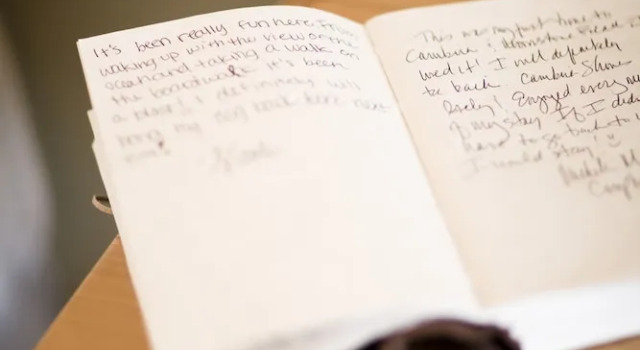 It's been really fun here. From
waking up with the view of the
ocean and taking a walk on
the boardwalk it's been
a blast! I definitely will
bring my dog back here next
time!
This was my first time to
Cambria & Moonstone Beach
loved it! I will definitely
be back. Cambria Shores
lovely! Enjoyed every
of my stay. If I didn't
have to go back to
I would stay!